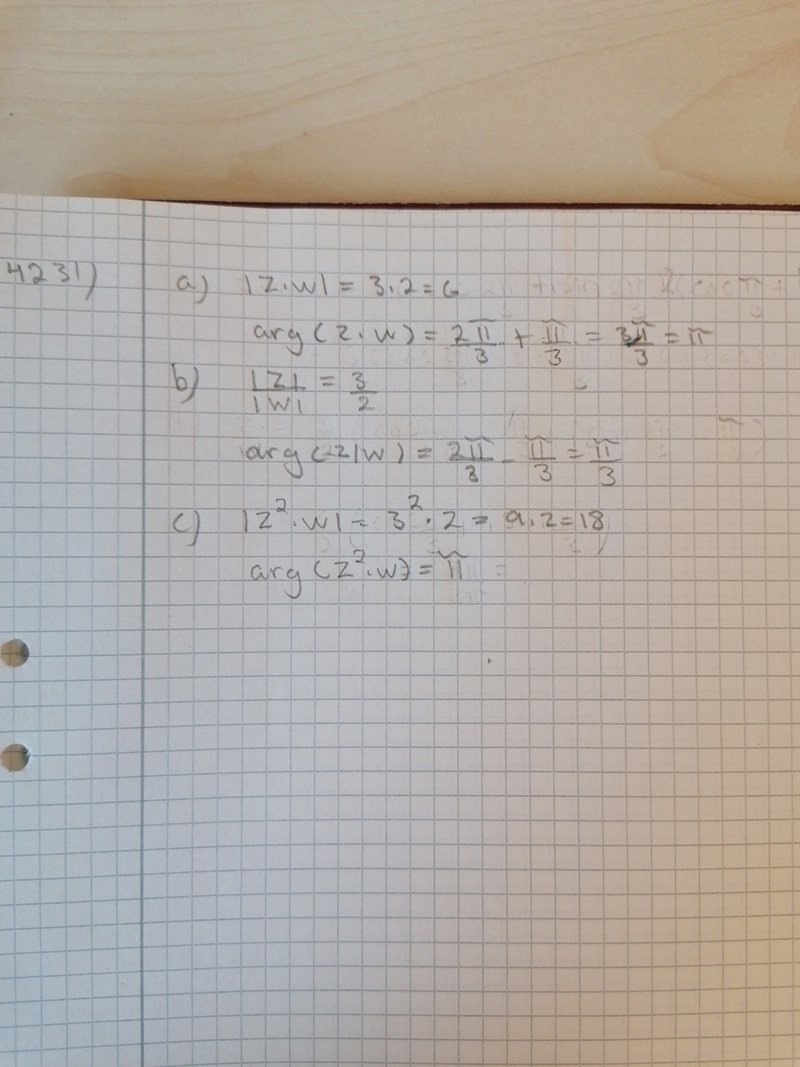 4231)
a) |z·w| = 3·2 = 6
arg(z·w) = 2π/3 + π/3 = 3π/3 = π
b) |z|/|w| = 3/2
arg(z/w) = 2π/3 - π/3 = π/3
c) |z²·w| = 3²·2 = 9·2 = 18
arg(z²·w) = π